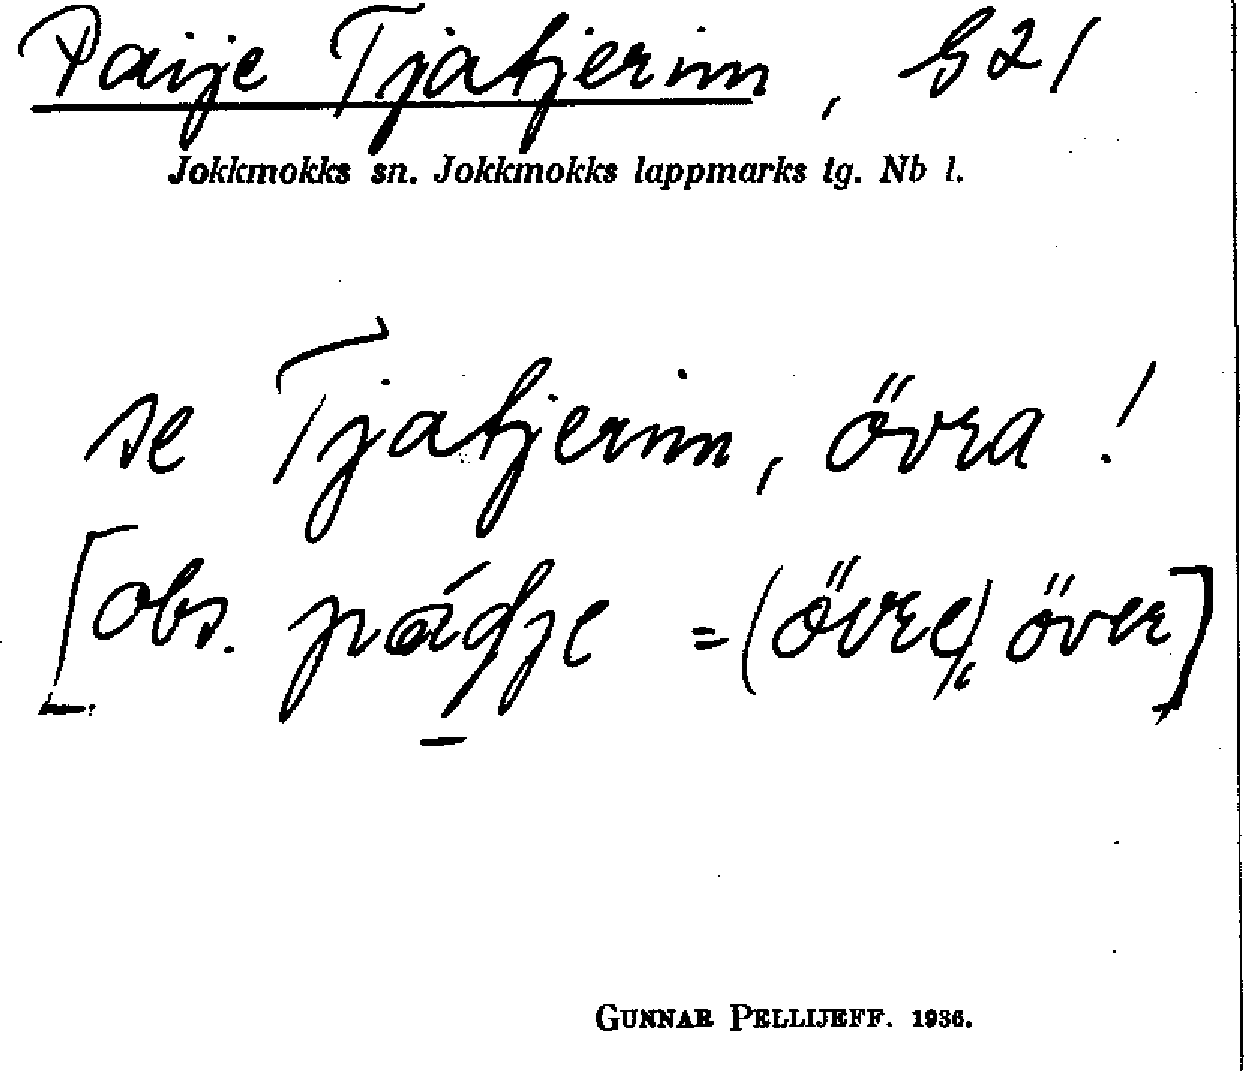 Paije Tjatjerim, G 21
Jokkmokks sn. Jokkmokks lappmarks tg. Nb l.
se Tjatjerim, övra!
[obs. = (övre), över]
GUNNAR PELLIJEFF. 1936.